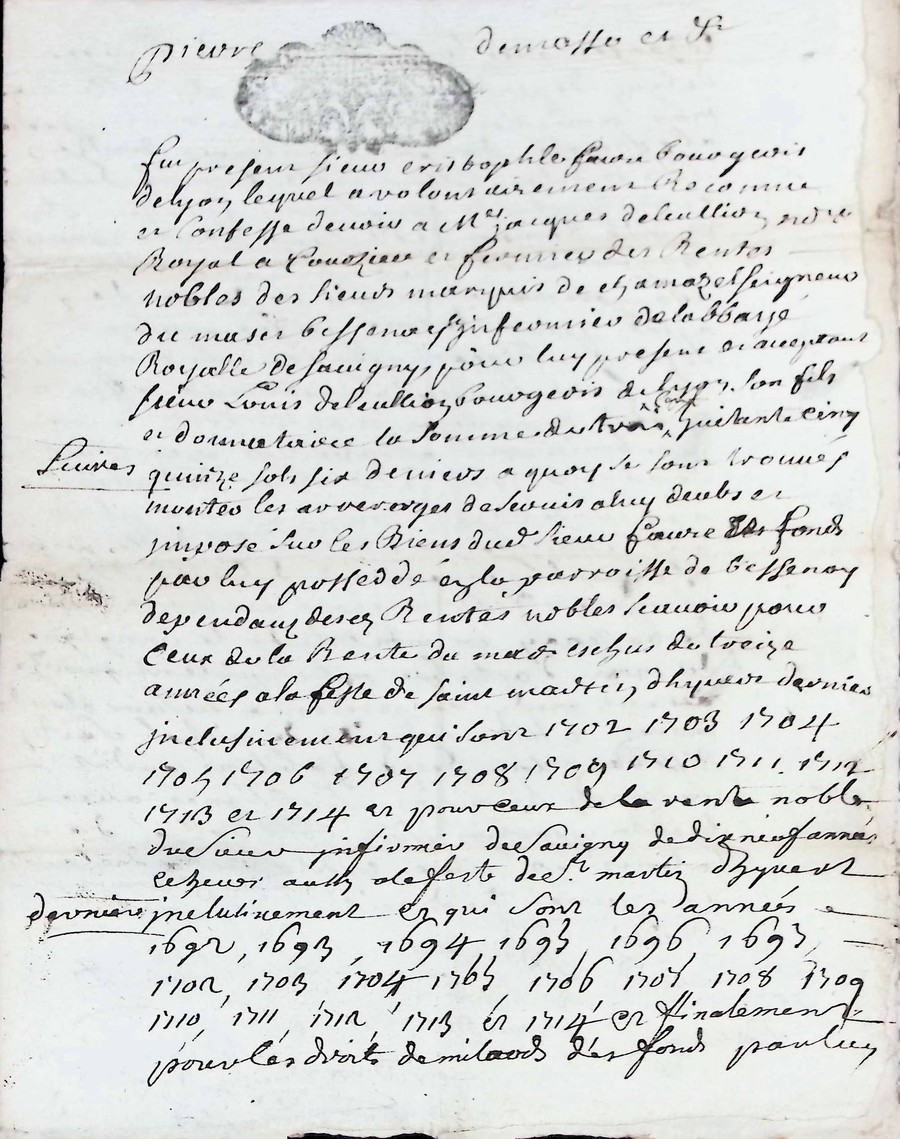 pierre demasso et Sr
fut present sieur cristophle faure bourgeois
delyon lequel a volontairement Reconnue
et Confesse devoir a Me Jacques deleullion notre
Royal a Couzieu et fermier des Rentes
nobles des sieurs marquis de chamazel seigneur
du mas et bessenay Jnfirmier delabbaye
Royalle de savigny, pour luy present et acceptant
sieur Louis deleullion bourgeois de lyon son fils
et donnataire la somme de trois cent quarante cinq
Livres
quinze sols six deniers a quoy se sont trouvés
monter les arrerages de servis a luy deubs et
jmposé sur les Biens dud sieur faure des fonds
par luy possedé en la parroisse de bessenay
dependant desd Rentes nobles scavoir pour
Ceux de la Rente du mas eschus de treize
années a la feste de saint martin dhyvers dernier
jnclusivement qui sont 1702 1703 1704
1705 1706 1707 1708 1709 1710 1711 1712
1713 et 1714 et pour ceux de la rente noble
du sieur jnfirmier de Savigny de dix neuf années
echeues aussy a la feste de St martin dhyvert
derniere jnclusivement et qui sont les années
1692, 1693, 1694 1695, 1696, 1697,
1702, 1703, 1704 1705 1706 1707 1708 1709
1710, 1711, 1712, 1713 et 1714 et finalement
pour les droits demilaods des fonds par luy